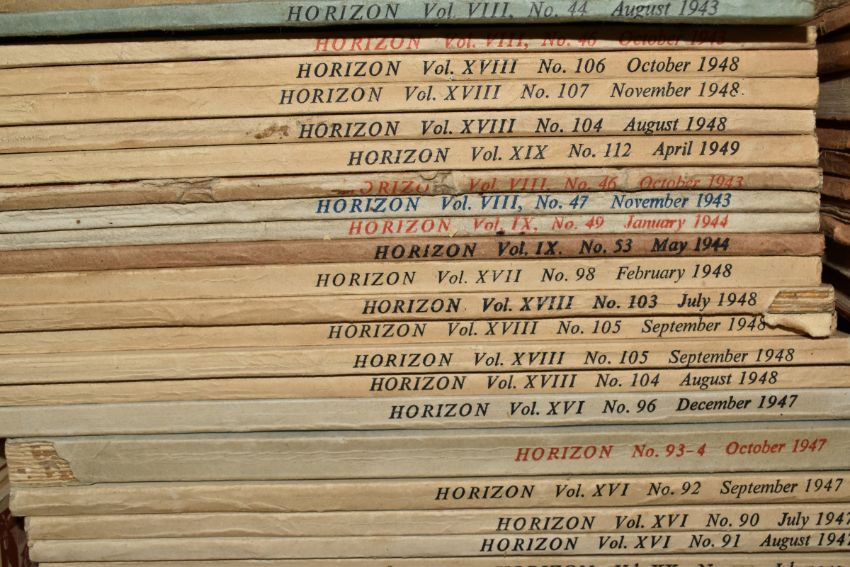 HORIZON Vol. VIII, No. 44 August 1943
HORIZON Vol. VIII, No. 46 October 1943
HORIZON Vol. XVIII No. 106 October 1948
HORIZON Vol. XVIII No. 107 November 1948
HORIZON Vol. XVIII No. 104 August 1948
HORIZON Vol. XIX No. 112 April 1949
HORIZON Vol. VIII, No. 46 October 1943
HORIZON Vol. VIII, No. 47 November 1943
HORIZON Vol. IX, No. 49 January 1944
HORIZON Vol. IX. No. 53 May 1944
HORIZON Vol. XVII No. 98 February 1948
HORIZON Vol. XVIII No. 103 July 1948
HORIZON Vol. XVIII No. 105 September 1948
HORIZON Vol. XVIII No. 105 September 1948
HORIZON Vol. XVIII No. 104 August 1948
HORIZON Vol. XVI No. 96 December 1947
HORIZON No. 93-4 October 1947
HORIZON Vol. XVI No. 92 September 1947
HORIZON Vol. XVI No. 90 July 1947
HORIZON Vol. XVI No. 91 August 1947